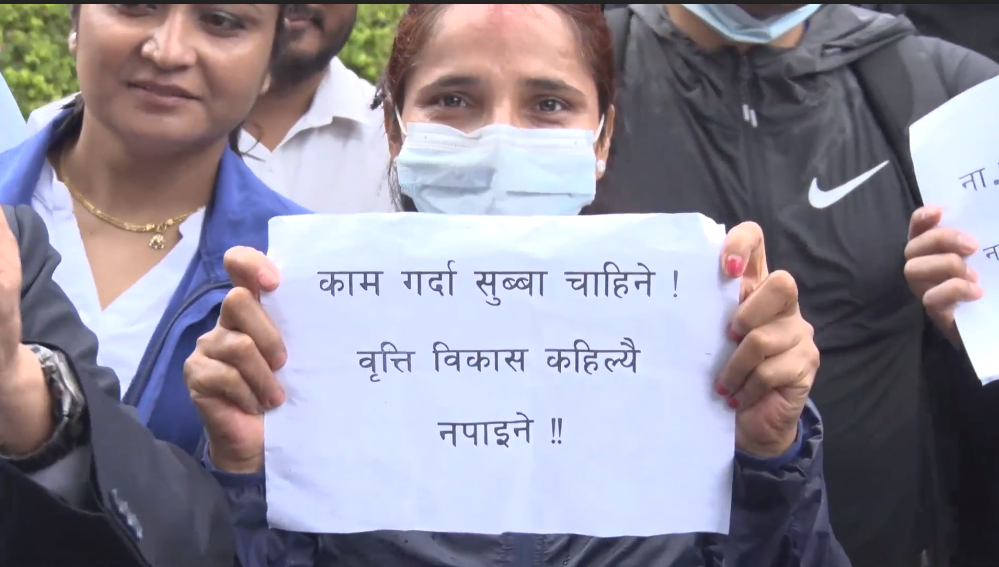 काम गर्दा सुब्बा चाहिने !
वृत्ति विकास कहिल्यै
नपाइने !!
ना.
न